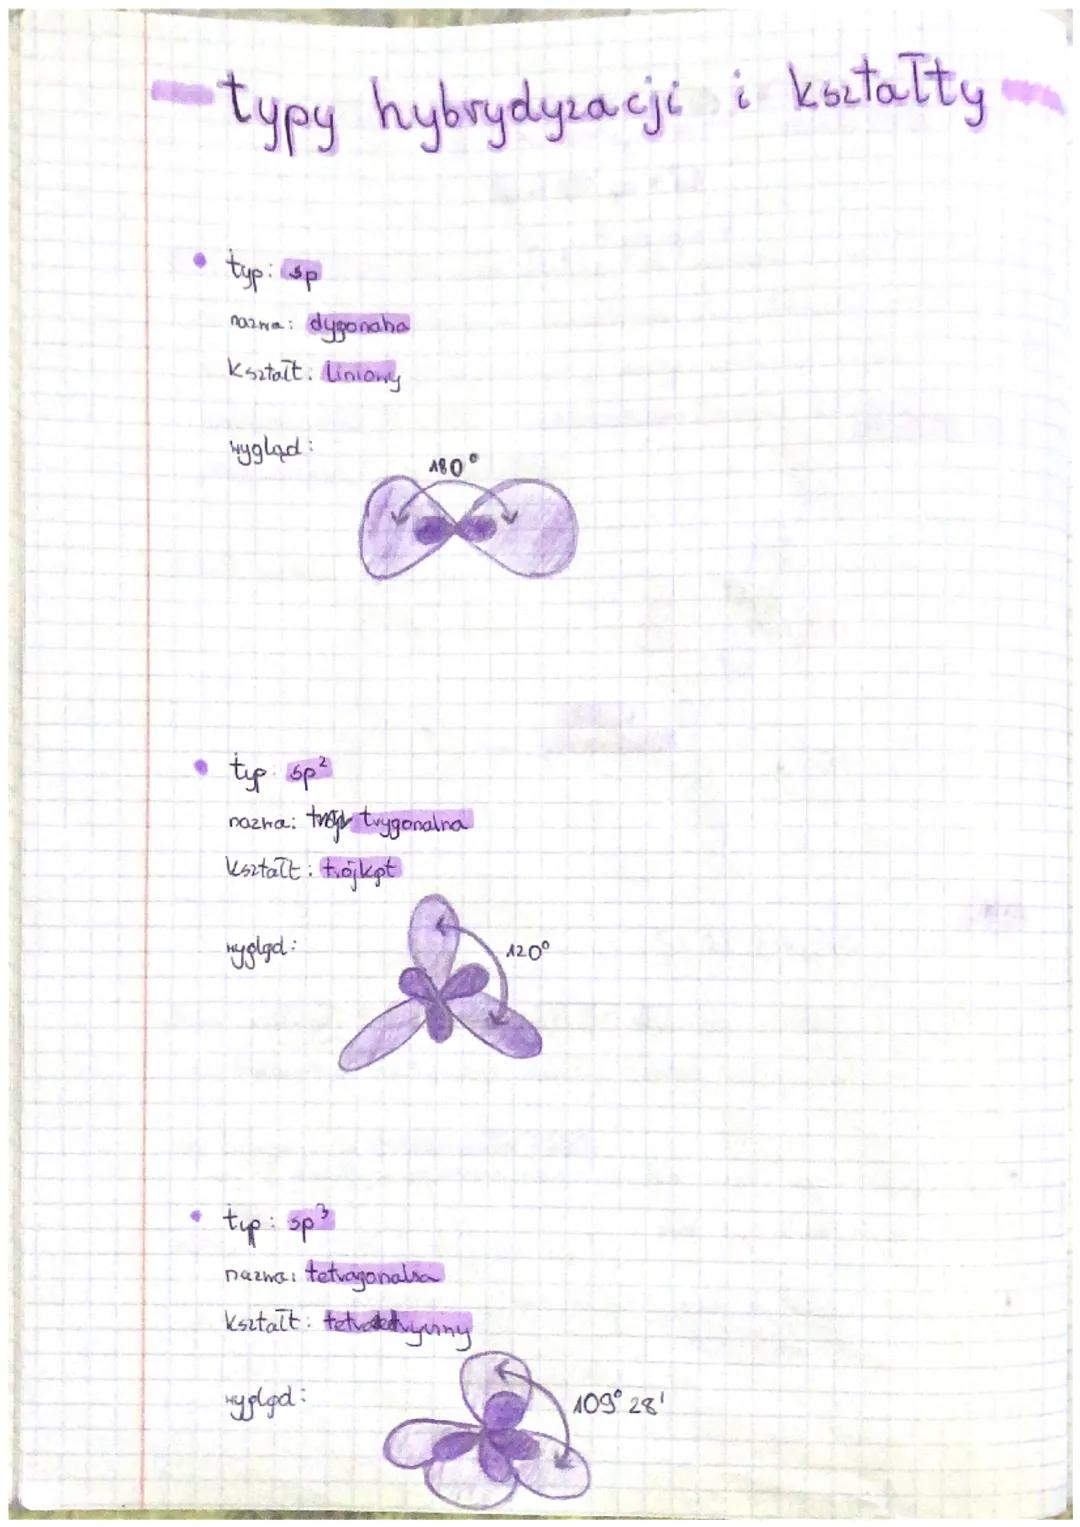 typy hybrydyzacji i kształty
typ: sp
nazwa: dygonalna
Kształt: liniowy
wygląd:
180°
typ: sp²
nazwa: trygonalna
Kształt: trójkąt
wygląd:
120°
typ: sp³
nazwa: tetragonalna
kształt: tetraedryczny
wygląd:
109° 28'